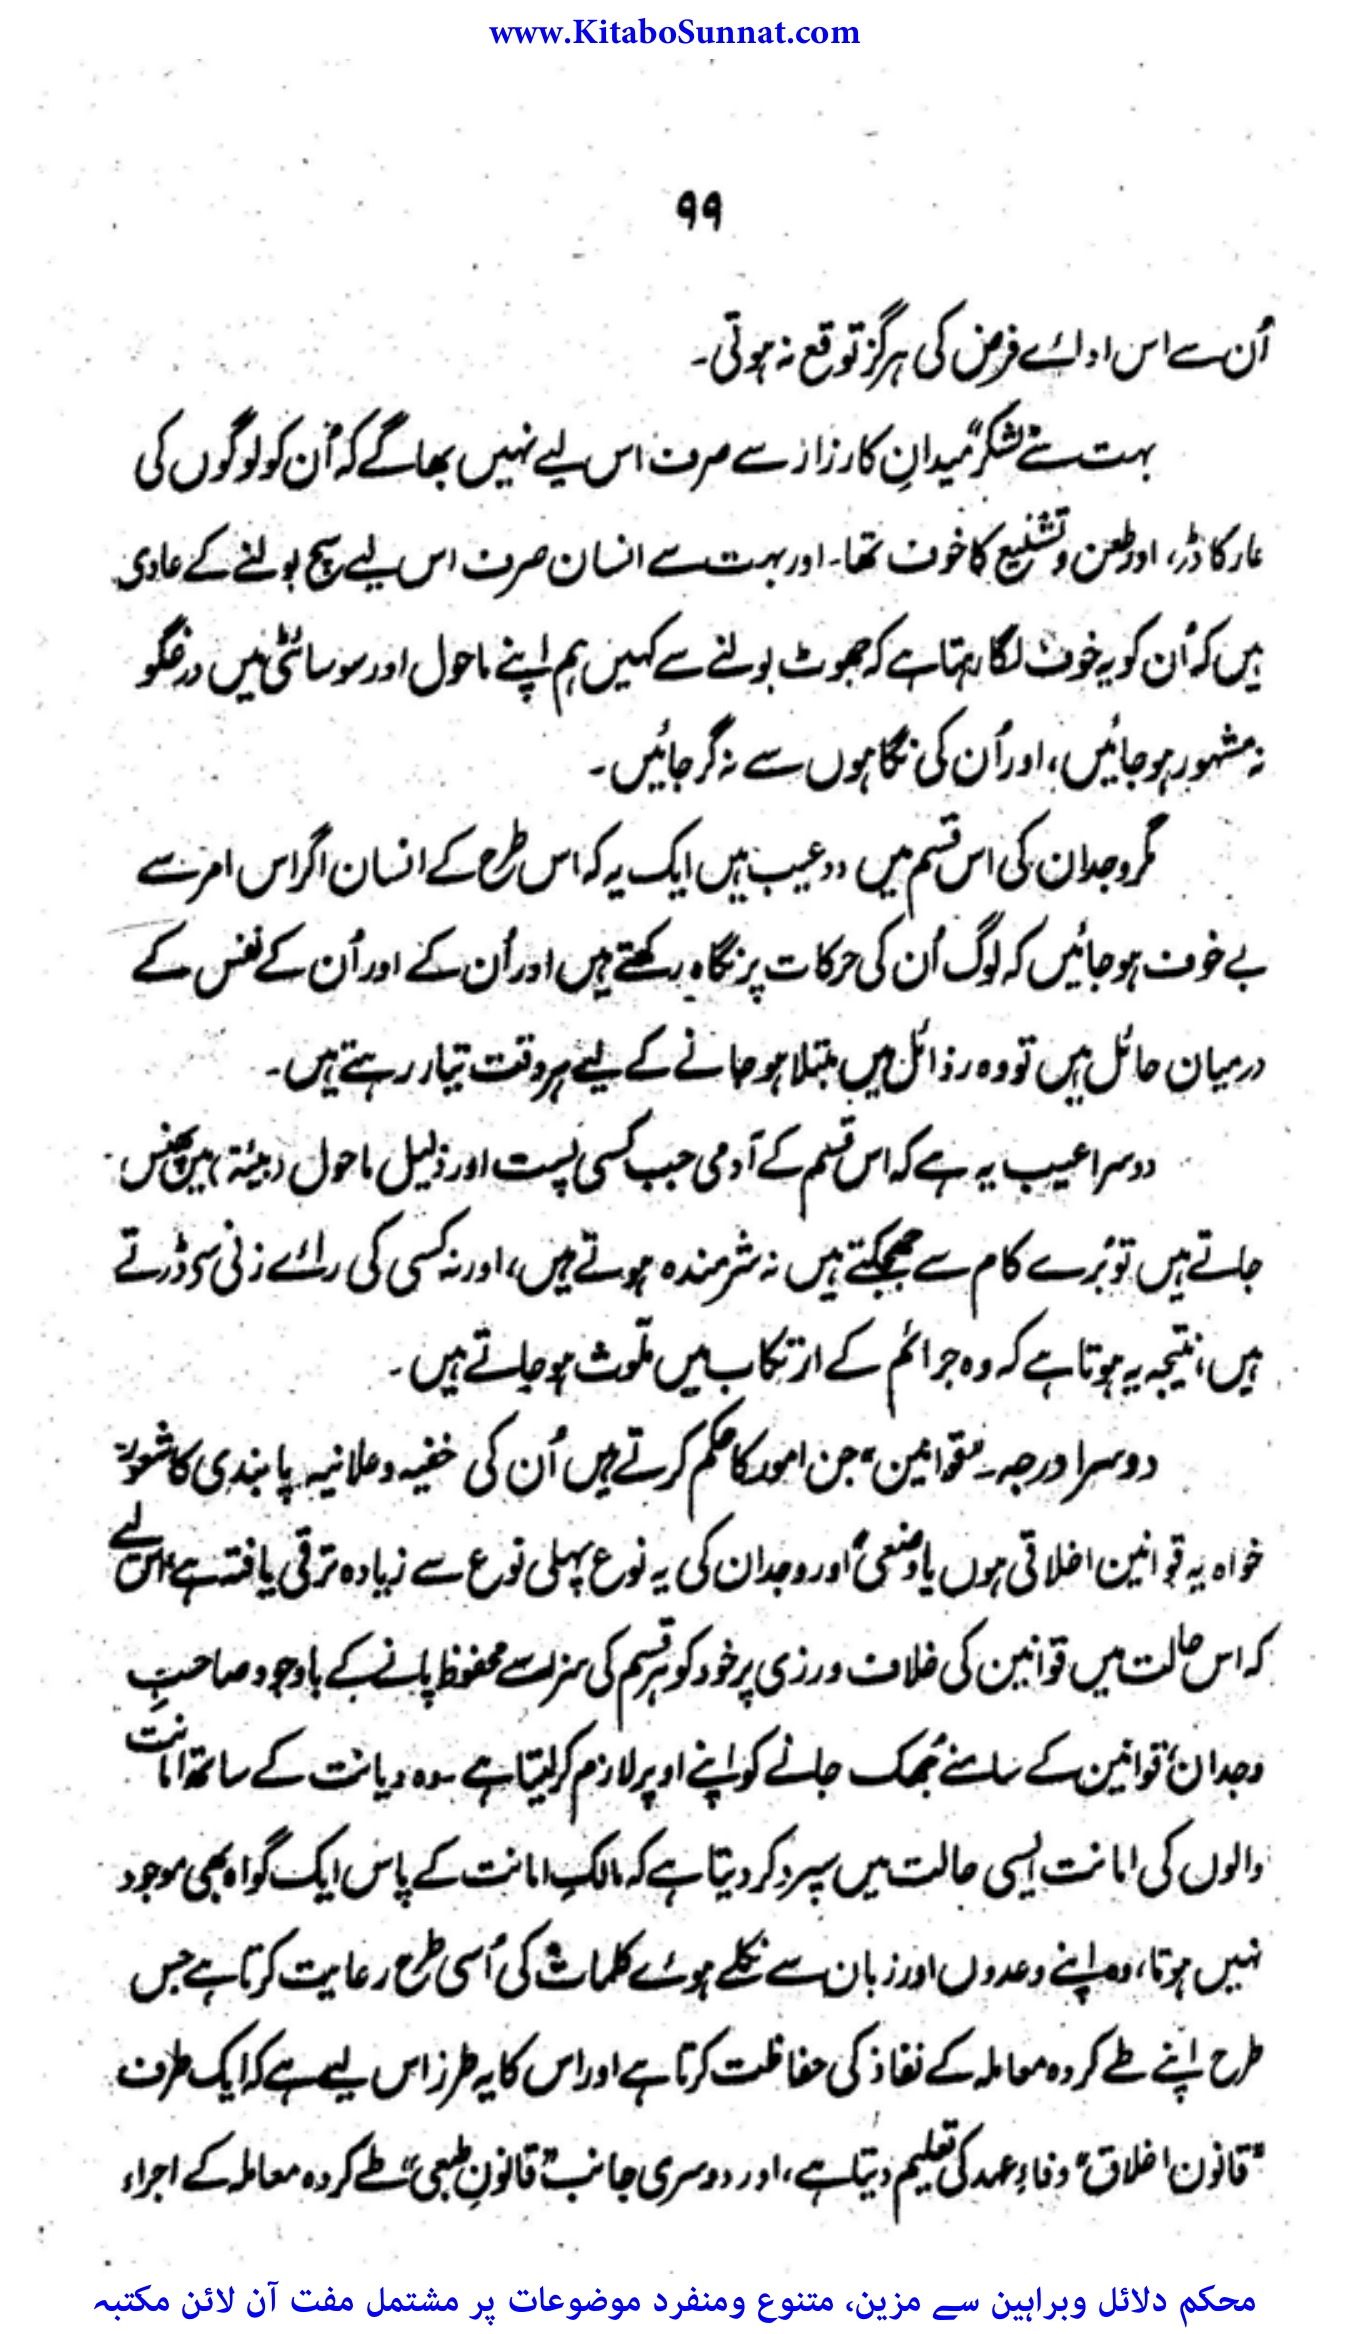 www.KitaboSunnat.com
۹۹
اُن سے اس ادائے فرض کی ہرگز توقع نہ ہوتی۔
بہت سے "لشکر" میدانِ کارزار سے صرف اس لیے نہیں بھاگے کہ اُن کو لوگوں کی
عار کا ڈر، اور طعن و تشنیع کا خوف تھا۔ اور بہت سے انسان صرف اس لیے سچ بولنے کے عادی
ہیں کہ اُن کو یہ خوف لگا رہتا ہے کہ جھوٹ بولنے سے کہیں ہم اپنے ماحول اور سوسائٹی میں دروغگو
نہ مشہور ہو جائیں، اور اُن کی نگاہوں سے نہ گر جائیں۔
مگر وجدان کی اس قسم میں دو عیب ہیں ایک یہ کہ اس طرح کے انسان اگر اس امر سے
بے خوف ہو جائیں کہ لوگ اُن کی حرکات پر نگاہ رکھتے ہیں اور اُن کے اور اُن کے نفس کے
درمیان حائل ہیں تو وہ رذائل میں مبتلا ہو جانے کے لیے ہر وقت تیار رہتے ہیں۔
دوسرا عیب یہ ہے کہ اس قسم کے آدمی جب کسی پست اور ذلیل ماحول (بیئۃ) میں پھنس
جاتے ہیں تو بُرے کام سے جھجکتے ہیں نہ شرمندہ ہوتے ہیں، اور نہ کسی کی رائے زنی سی ڈرتے
ہیں، نتیجہ یہ ہوتا ہے کہ وہ جرائم کے ارتکاب میں ملوث ہو جاتے ہیں۔
دوسرا درجہ۔ "قوانین" جن امور کا حکم کرتے ہیں اُن کی خفیہ و علانیہ پابندی کا شعور"
خواہ یہ قوانین اخلاقی ہوں یا وضعی" اور وجدان کی یہ نوع پہلی نوع سے زیادہ ترقی یافتہ ہے، اس لیے
کہ اس حالت میں قوانین کی خلاف ورزی پر خود کو ہر قسم کی سزا سے محفوظ پانے کے باوجود صاحبِ
وجدان، قوانین کے سامنے جُھک جانے کو اپنے اوپر لازم کر لیتا ہے۔ وہ دیانت کے ساتھ امانت
والوں کی امانت ایسی حالت میں سپرد کر دیتا ہے کہ مالکِ امانت کے پاس ایک گواہ بھی موجود
نہیں ہوتا، وہ اپنے وعدوں اور زبان سے نکلے ہوئے کلمات کی اُسی طرح رعایت کرتا ہے جس
طرح اپنے طے کردہ معاملہ کے نفاذ کی حفاظت کرتا ہے اور اس کا یہ طرز اس لیے ہے کہ ایک طرف
"قانون اخلاق" وفاءِ عہد کی تعلیم دیتا ہے، اور دوسری جانب "قانونِ طبعی" طے کردہ معاملہ کے اجراء
محکم دلائل وبراہین سے مزین، متنوع ومنفرد موضوعات پر مشتمل مفت آن لائن مکتبہ